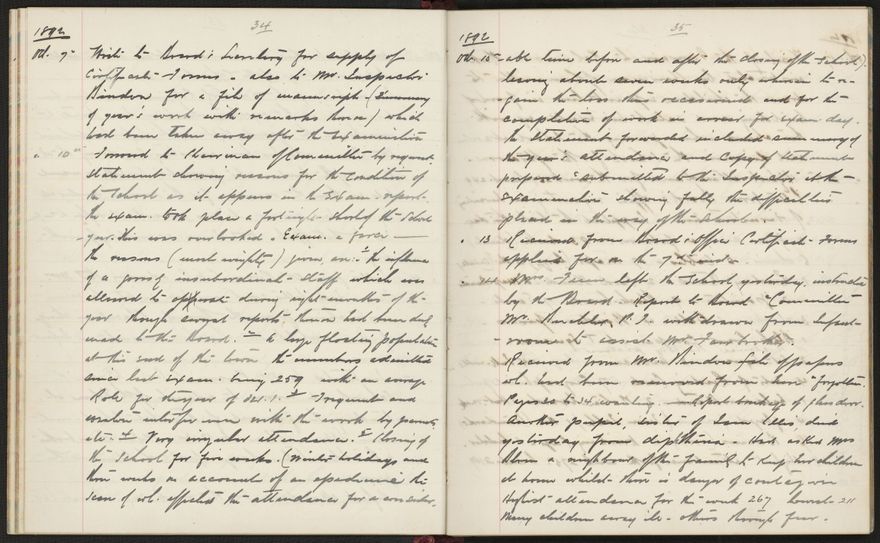 34
1892
Oct. 7 Write to Board's Secretary for supply of
Certificate Forms - also to Mr. Inspector
Rindon for a file of manuscripts (Summary
of year's work with remarks thereon) which
had been taken away after the examination
" 10th Forward to Chairman of Committee by request
statement showing reasons for the condition of
the School as it appears in the Exam. report.
the exam. took place a fortnight short of the School
year. this was overlooked. Exam. a farce
the reasons (most weighty) given are: 1 the influence
of a grossly insubordinate staff which was
allowed to operate during eight months of the
year though several reports thereon had been duly
made to the Board. 2 a large floating population
at this end of the town the numbers admitted
since last exam. being 259 with an average
Role for the year of 3 Frequent and
interference with the work by parents,
etc. 4 Very irregular attendance. 5 Closing of
the School for five weeks. (Winter holidays and
three weeks on account of an epidemic the
fear of wh. affected the attendance for a consider-
35
1892
Oct. 10 -able time before and after the closing of the School).
leaving about seven weeks only wherein to re-
gain the loss thus occasioned and for the
completion of work in arrear for exam. day.
the statement forwarded included summary of
the year's attendance and copy of statement
prepared & submitted to the Inspector at the
examination showing fully the difficulties
placed in the way of the School.
" 13 Received from Board's Office Certificate Forms
applied for on the 7th
" 14 Miss left the School yesterday, instructed
by the Board. Report to Board & Committee
Mr. P.T. withdrawn from Infant-
-room to assist Mr.
Received from Mr. Rindon file of papers
wh. had been removed from here "forgotten".
Report breakage of glass door.
Another pupil, sister of died
yesterday from diptheria. Had asked Mrs
a neighbour of the family to keep her children
at home whilst there is danger of contagion
Highest attendance for the week 267 lowest 211
Many children away ill - others through fear.